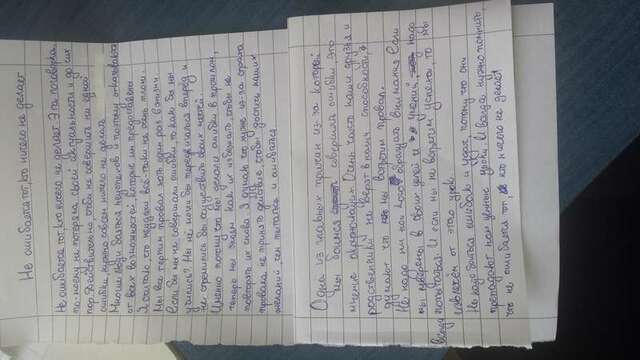 Не ошибается тот, кто ничего не делает
Не ошибается тот, кто ничего не делает. Эта поговорка,
по-моему не потеряла своей актуальности и до сих
пор. Действительно, чтобы не совершить ни одной
ошибки, нужно совсем ничего не делать
Многие люди бояться неуспехов и поэтому отказываются
от всех возможностей, которые им предоставлены
Я считаю, что неудачи всё-таки не очень плохи.
Мы все терпим провал хоть один раз в жизни
Если бы мы не совершали ошибки, то как бы мы
учились? Мы не могли бы передвигаться вперёд и
не стремились бы осуществить своих мечтей.
Именно потому что мы делали ошибки в прошлом,
теперь мы знаем как их избежать, чтобы не
повторять их снова. Я думаю что хуже из-за страха
провала не принять действие, чтобы достичь наших
желаний, чем пытаться и ошибаться.
Одна из главных причин из-за которой
мы боимся совершить ошибки, это
мнение окружающих. Очень часто наши друзья и
родственники не верят в наши способности, и
думают что мы потерпим провал.
Не надо ни на кого обращать внимания. Если
мы уверены в своих целей и умений, надо
всегда попытаться. И если мы не потерпим успеха, то мы
извлечём от этого урок.
Не надо бояться ошибок и удач, потому что они
преподают нам ценные уроки. И всегда нужно помнить,
что не ошибается тот, кто ничего не делает